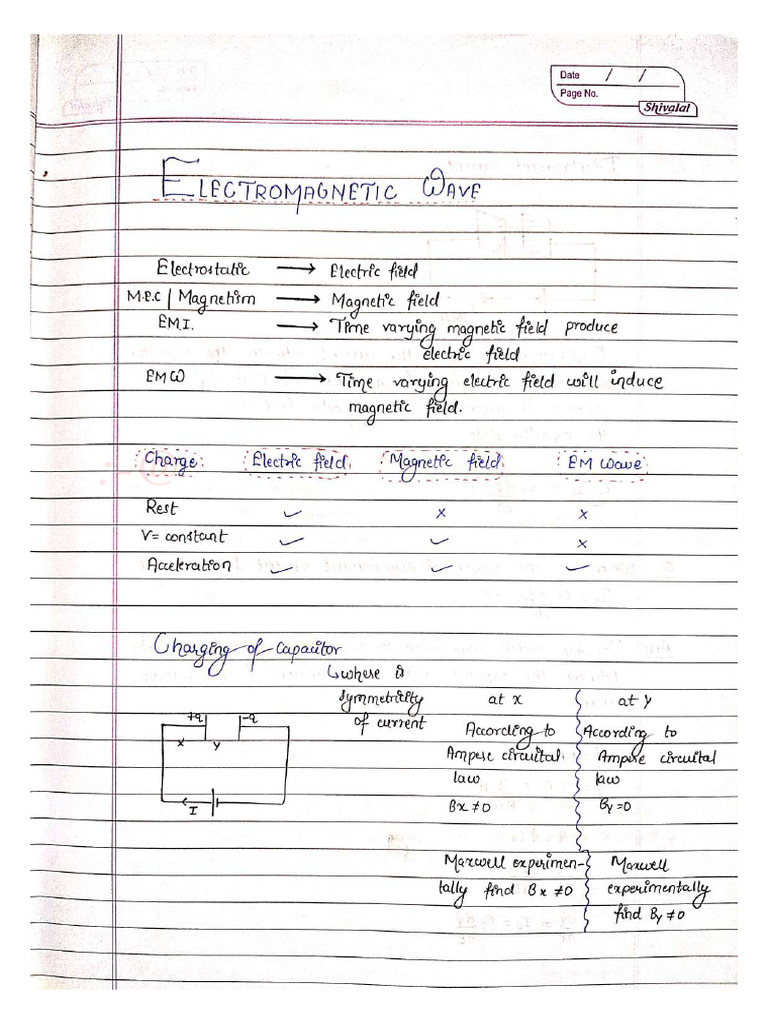 Date / /
Page No.
Shivalal
ELECTROMAGNETIC WAVE
Electrostatic → Electric field
M.E.C | Magnetism → Magnetic field
E.M.I. → Time varying magnetic field produce
electric field
EMW → Time varying electric field will induce
magnetic field.
Charge: Electric field Magnetic field EM wave
Rest ✓ x x
V = constant ✓ ✓ x
Acceleration ✓ ✓ ✓
Charging of capacitor
↳ where is
symmetricity
of current
+q -q
x y
I
at x
According to
Ampere circuital
law
Bx ≠ 0
Maxwell experimen-
tally find Bx ≠ 0
at y
According to
Ampere circuital
law
By = 0
Maxwell
experimentally
find By ≠ 0